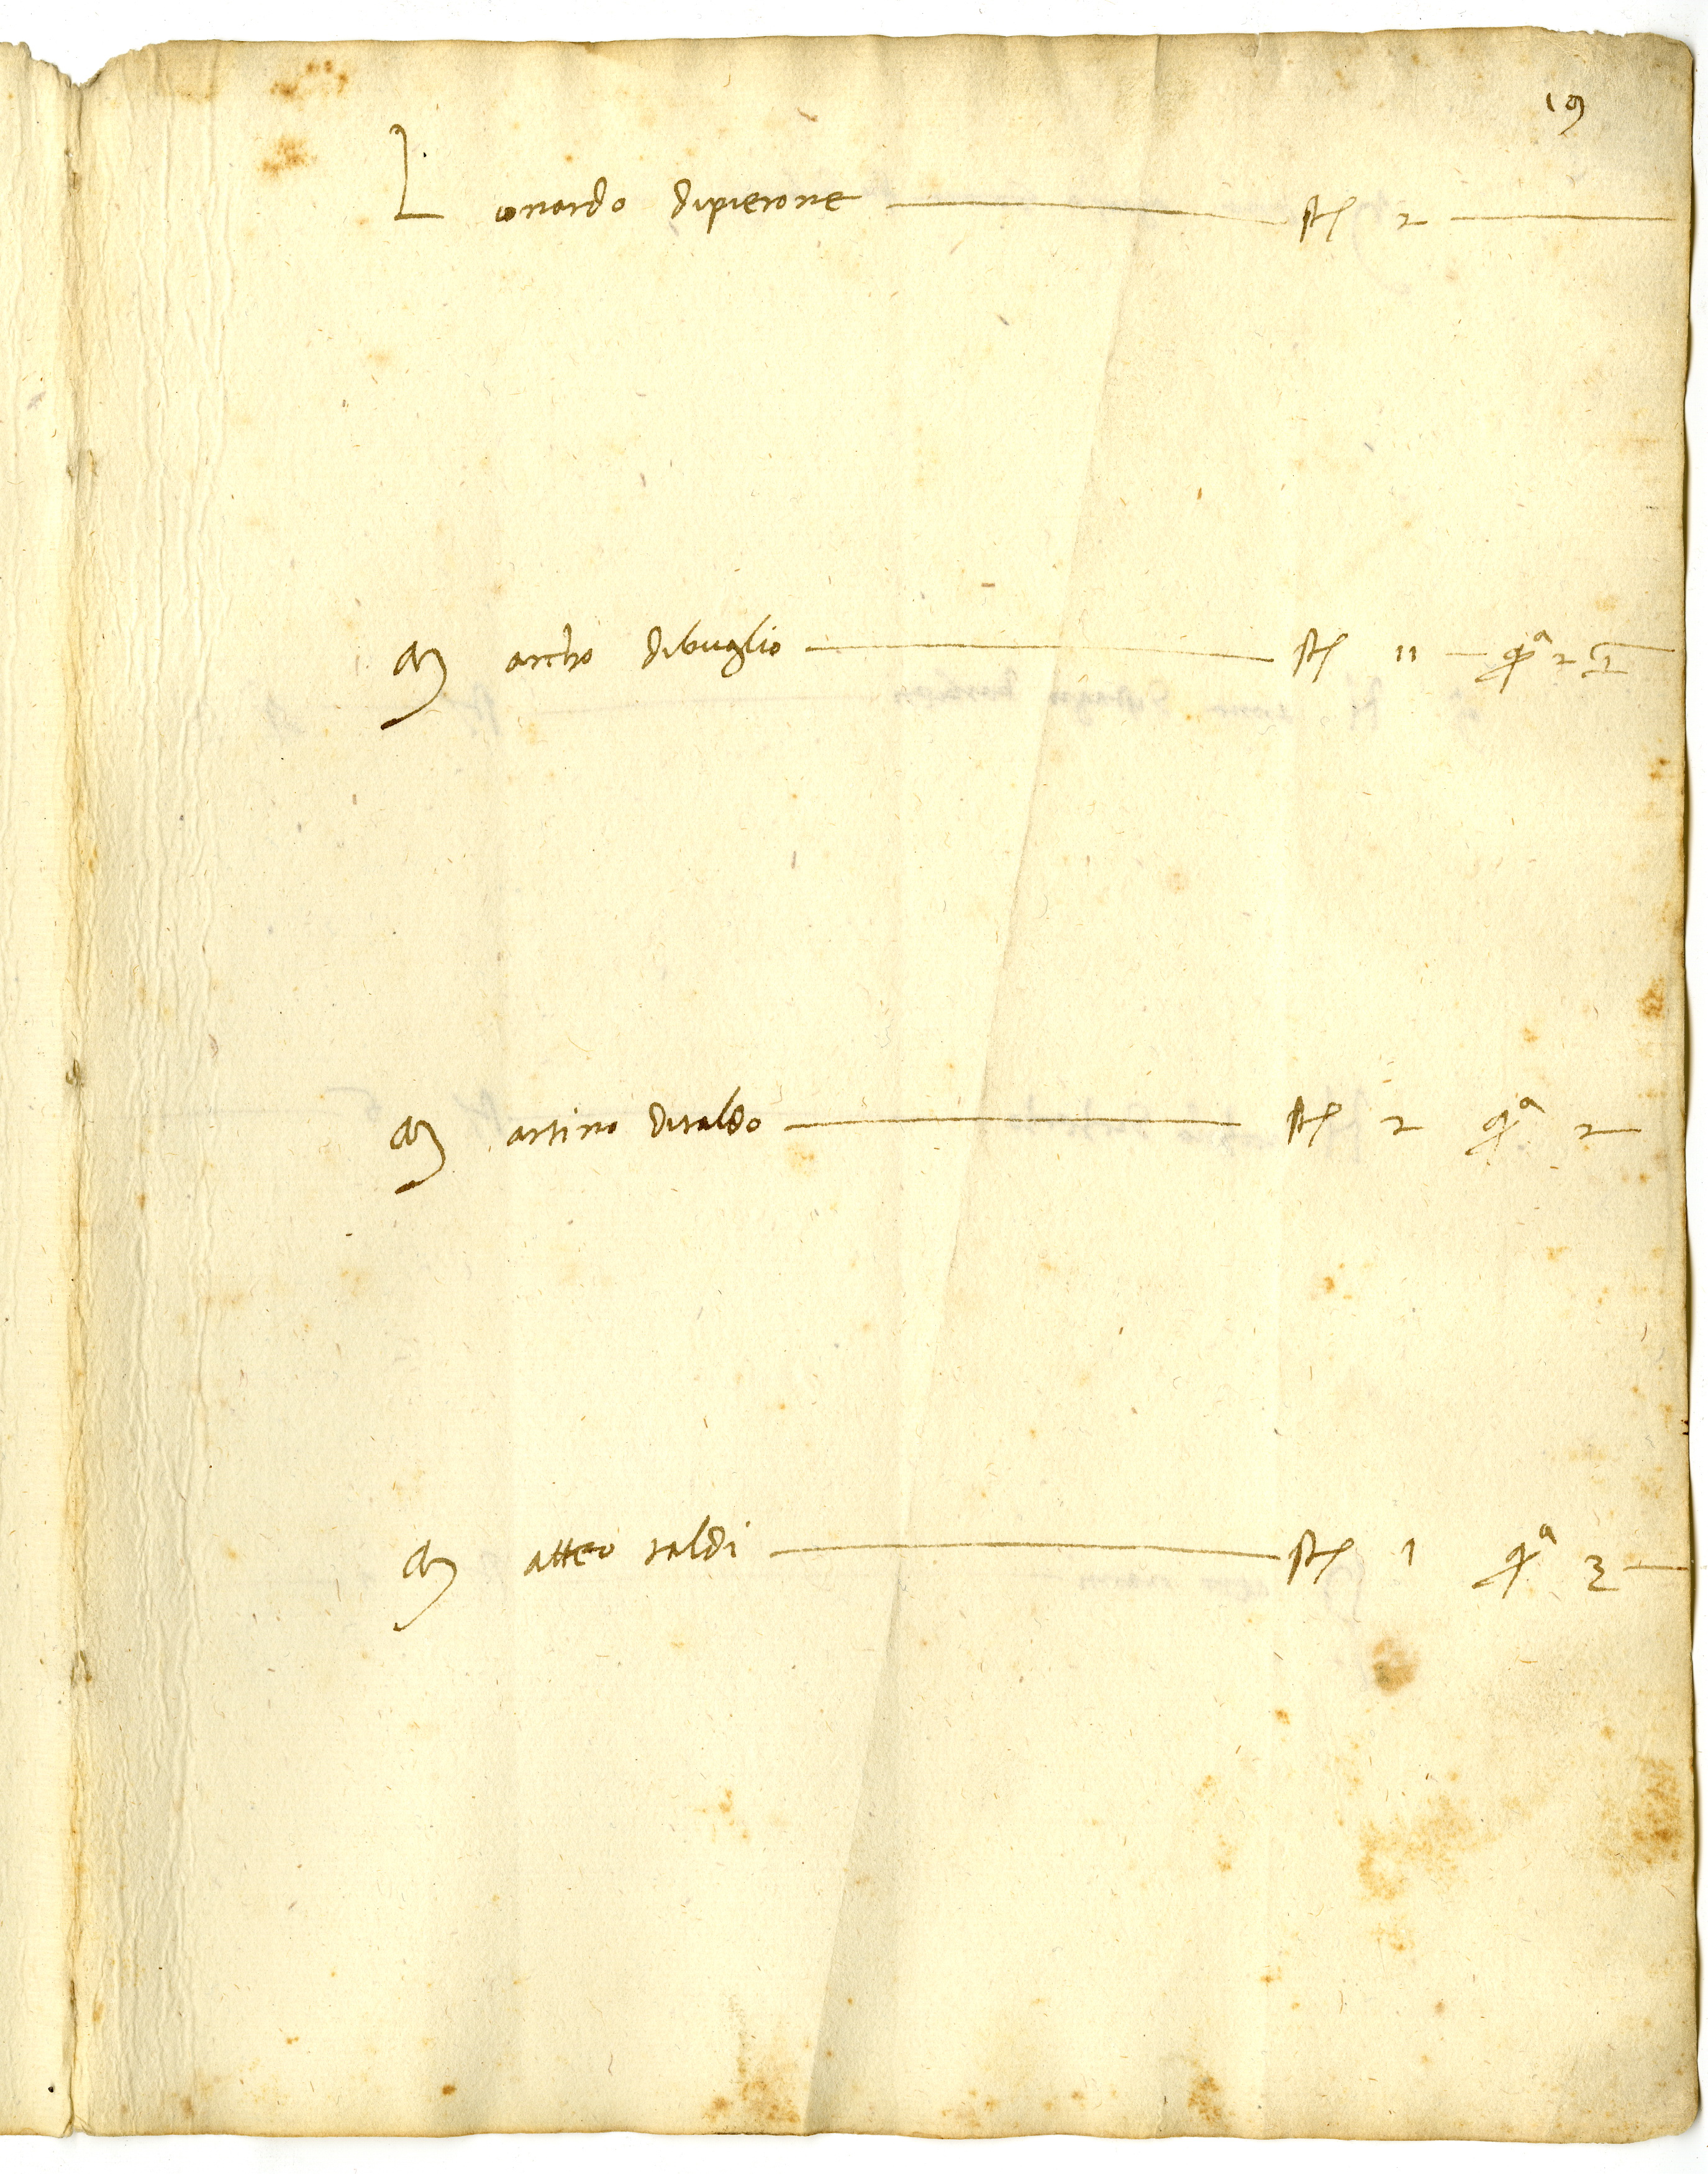 19
L ionardo dipierone st 2
M archo dibuglio st 11 qra 2 1/2
M artino diraldo st 2 qra 2
M atteo raldi st 1 qra 3